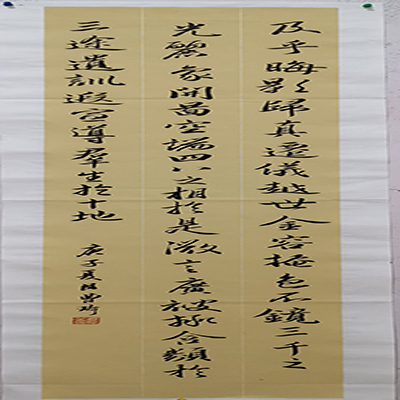 及乎晦影归真遷儀越世金容掩色不鏡三千之
光麗象開圖空端四八之相於是微言廣被拯含類於
三途遺訓遐宣導群生於十地
庚子夏